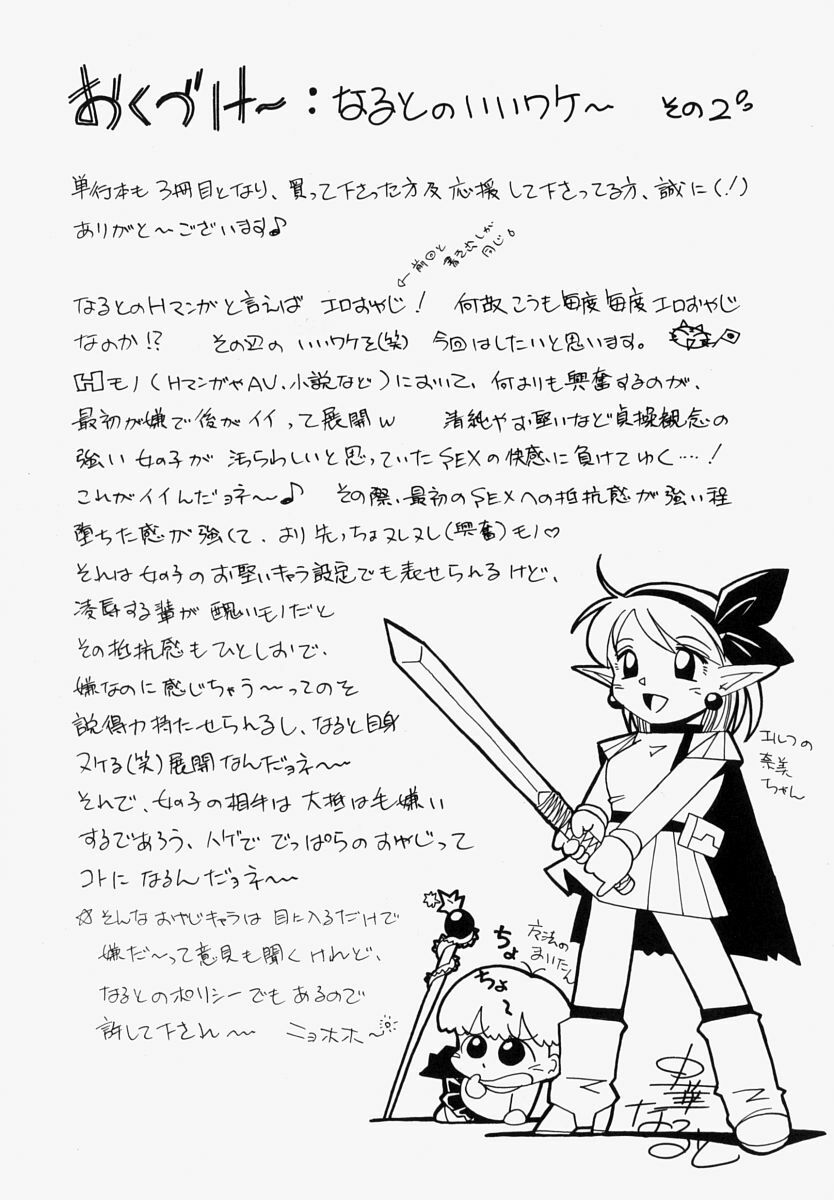 おくづけ〜：なるとのいいワケ〜 その2。
単行本も3冊目となり、買って下さった方及応援して下さってる方、誠に(!)
ありがと〜ございます♪
←前回と
書き出しが
同じ。
なるとのHマンガと言えば エロおやじ! 何故こうも毎度毎度エロおやじ
なのか!? その辺の いいワケを(笑) 今回はしたいと思います。
Hモノ(HマンガやAV、小説など)において、何よりも興奮するのが、
最初が嫌で後がイイって展開w 清純やお堅いなど貞操観念の
強い 女の子が 汚らわしいと思っていたSEXの快感に負けてゆく…!
これがイイんだョネ〜♪ その際、最初のSEXへの抵抗感が強い程
堕ちた感が強くて、より先っちょヌレヌレ(興奮)モノ♡
それは女の子のお堅いキャラ設定でも表せられるけど、
凌辱する輩が 醜いモノだと
その抵抗感もひとしおで、
嫌なのに感じちゃう〜ってのを
説得力持たせられるし、なると自身
ヌケる(笑)展開なんだョネ〜
それで、女の子の相手は 大抵は毛嫌い
するであろう、ハゲで でっぱらのおやじって
コトに なるんだョネ〜
☆そんなおやじキャラは 目に入るだけで
嫌だ〜って意見も聞くけれど、
なるとのポリシーでもあるので
許して下され〜 ニョホホ〜
エルフの
奈美
ちゃん
魔法の
まいたん
ちょ
ちょ〜
中華
なると